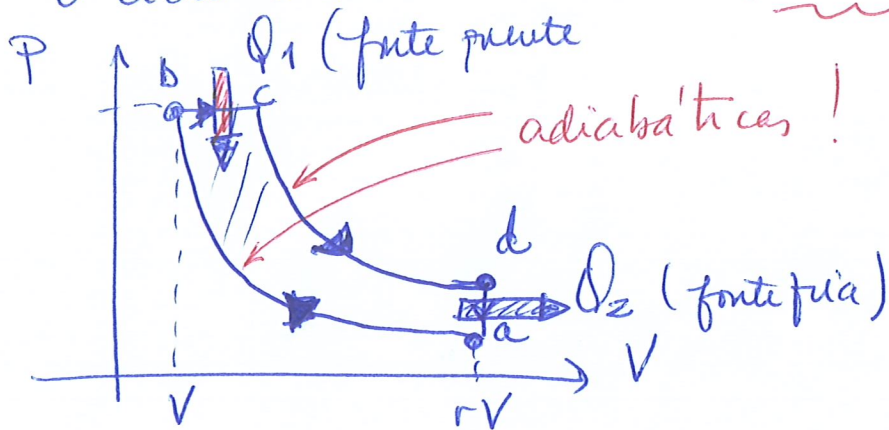 P
b
Q1 (fonte quente
c
adiabáticas !
d
Q2 (fonte fria)
a
V
V
rV